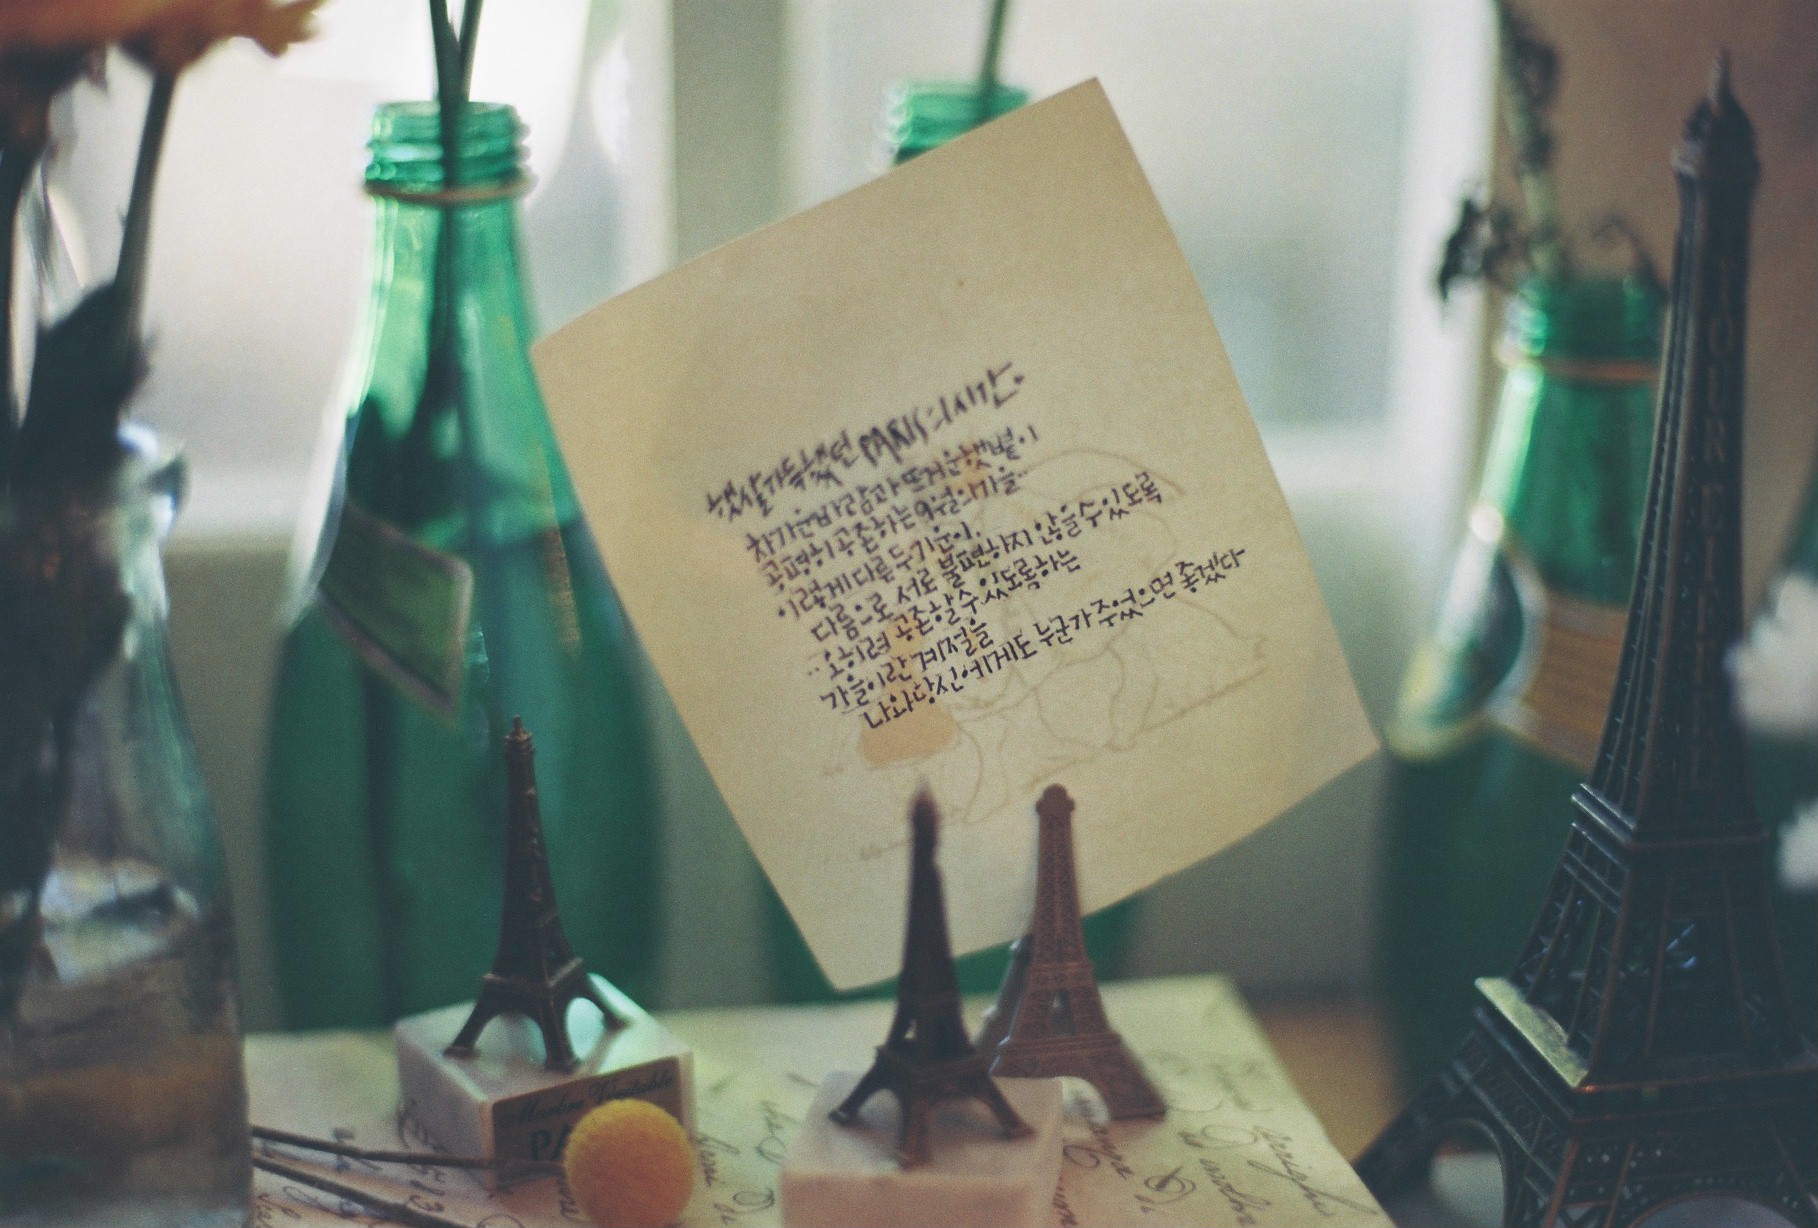 햇살가득했던 PARIS의시간.
차가운바람과 뜨거운햇볕이
공평히 공존하는 9월의가을..
이렇게 다른 두기운이.
다름으로 서로 불편하지 않을 수 있도록
..오히려 공존할수있도록하는
가을이란 계절을
나와당신에게도 누군가 주었으면 좋겠다
Marbre Veritable
PA
TOUR EIFFEL